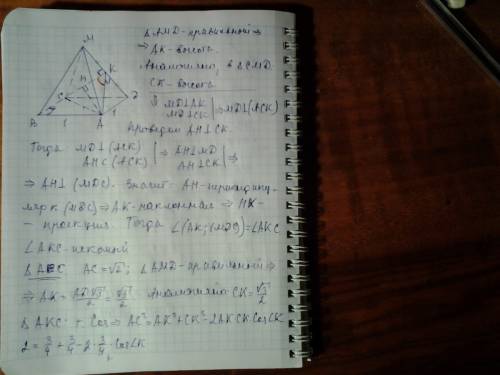 Δ AMD - правильный ⇒
⇒ AK - высота.
Аналогично, в Δ CMD
CK - высота
MD ⊥ AK
MD ⊥ CK | ⇒ MD ⊥ (ACK)
Проведем AH ⊥ CK
M
K
H
C
D
B
A
1
1
Тогда MD ⊥ (ACK)
AH ⊂ (ACK) | ⇒ AH ⊥ MD
AH ⊥ CK | ⇒
⇒ AH ⊥ (MDC). Значит AH - перпендику-
ляр к (MDC) ⇒ AK - наклонная ⇒ HK -
- проекция. Тогда ∠(AK; (MDC)) = ∠AKC
∠AKC - искомый
Δ AKC AC = √2; Δ AMD - правильный ⇒
⇒ AK = AD√3/2 = √3/2 Аналогично CK = √3/2
Δ AKC т. Cos ⇒ AC² = AK² + CK² - 2AK CK · Cos∠K
2 = 3/4 + 3/4 - 2 · 3/4 · Cos∠K